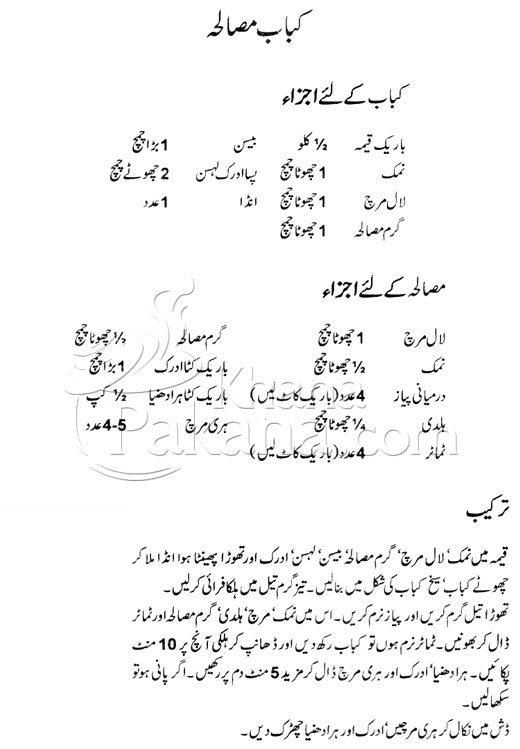 کباب مصالحہ
کباب کے لئے اجزاء
باریک قیمہ ½ کلو بیسن 1 بڑا چمچ
نمک 1 چھوٹا چمچ پسا ادرک لہسن 2 چھوٹے چمچ
لال مرچ 1 چھوٹا چمچ انڈا 1 عدد
گرم مصالحہ 1 چھوٹا چمچ
مصالحہ کے لئے اجزاء
لال مرچ 1 چھوٹا چمچ گرم مصالحہ ½ چھوٹا چمچ
نمک ½ چھوٹا چمچ باریک کٹا ادرک 1 بڑا چمچ
درمیانی پیاز 4 عدد (باریک کاٹ لیں) باریک کٹا ہرا دھنیا ½ کپ
ہلدی ¼ چھوٹا چمچ ہری مرچ 4-5 عدد
ٹماٹر 4 عدد (باریک کاٹ لیں)
Khana
Pakana.com
ترکیب
قیمہ میں نمک، لال مرچ، گرم مصالحہ، بیسن، لہسن، ادرک اور تھوڑا پھینٹا ہوا انڈا ملا کر
چھوٹے کباب، سیخ کباب کی شکل میں بنا لیں۔ تیز گرم تیل میں ہلکا فرائی کر لیں۔
تھوڑا تیل گرم کریں اور پیاز نرم کریں۔ اس میں نمک، مرچ، ہلدی، گرم مصالحہ اور ٹماٹر
ڈال کر بھونیں۔ ٹماٹر نرم ہوں تو کباب رکھ دیں اور ڈھانپ کر ہلکی آنچ پر 10 منٹ
پکائیں۔ ہرا دھنیا، ادرک اور ہری مرچ ڈال کر مزید 5 منٹ دم پر رکھیں۔ اگر پانی ہو تو
سکھا لیں۔
ڈش میں نکال کر ہری مرچیں، ادرک اور ہرا دھنیا چھڑک دیں۔